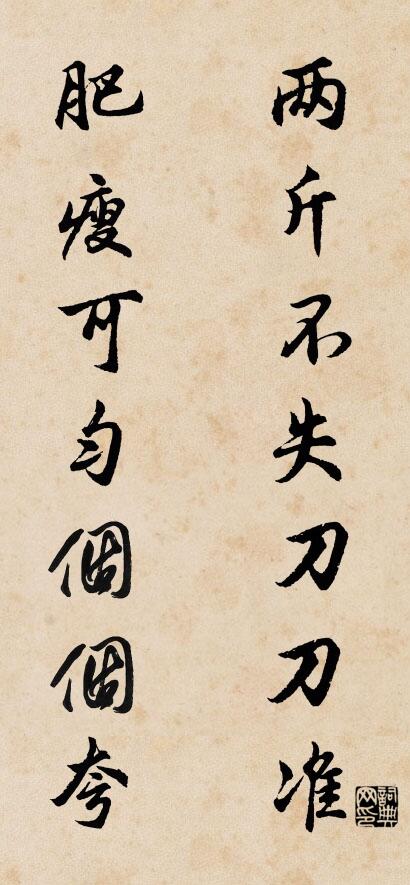 两斤不失刀刀准
肥瘦可匀個個夸
詞典网印